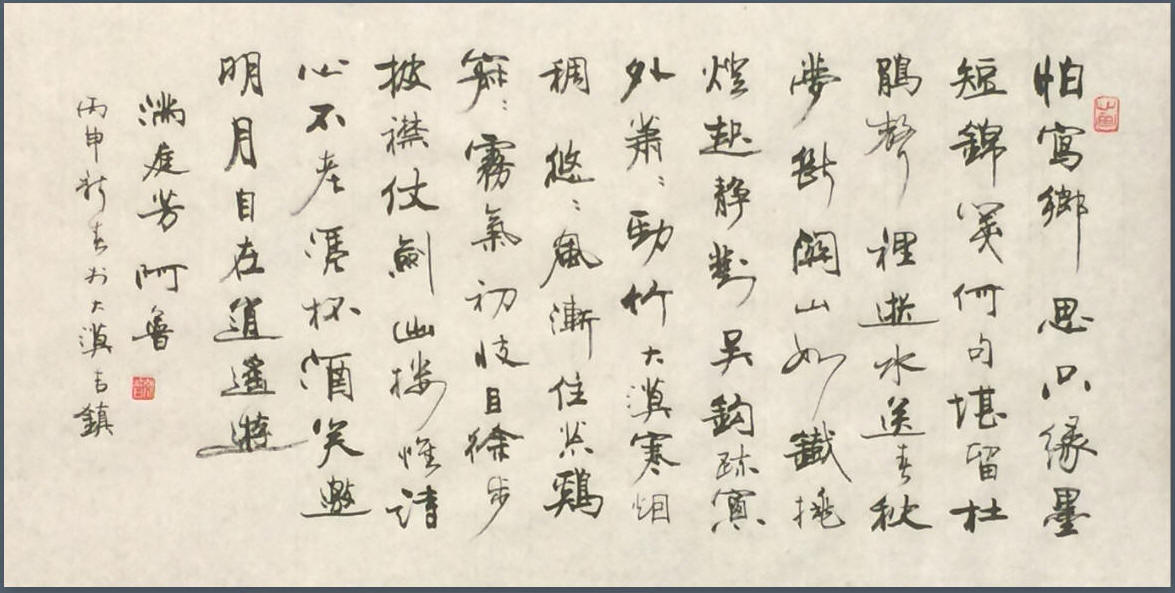 怕寫鄉思只緣墨
短錦箋何句堪留杜
鵑聲裡逝水送春秋
夢斷關山如鐵挑
燈起靜對吳鈎疎窗
外蕭〻勁竹大漠寒烟
稠悠〻風漸住荒鷄
寂〻霧氣初收且徐步
披襟仗劍幽樓惟詩
心不老憑杯酒笑邀
明月自在逍遙游
滿庭芳 阿魯
丙申新春於大漠古鎮